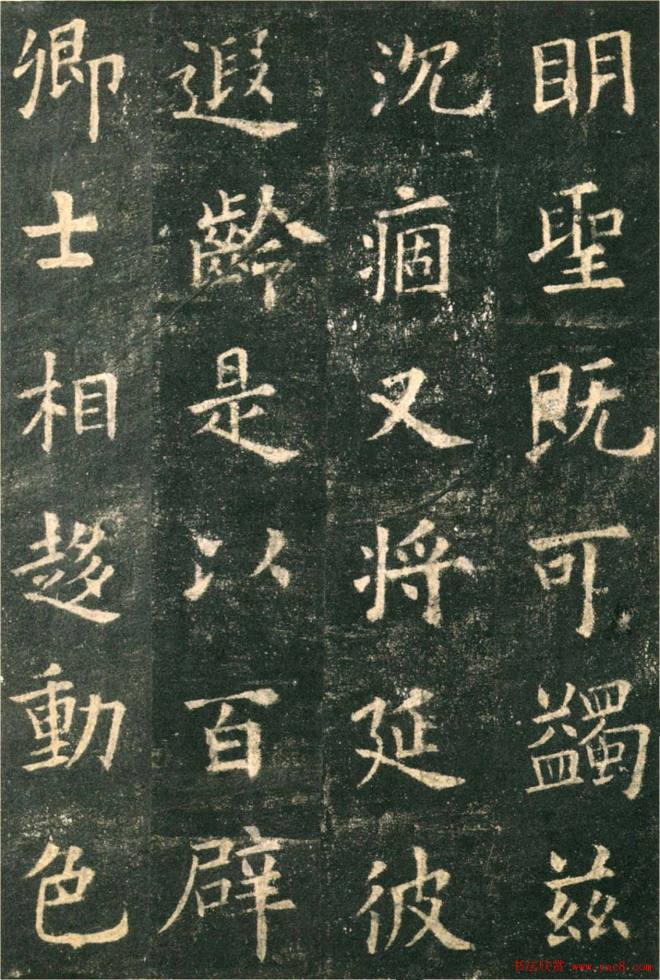 眀聖既可蠲兹
沉痼又将延彼
遐齡是以百辟
卿士相趍動色
书法欣赏:www.yac8.com